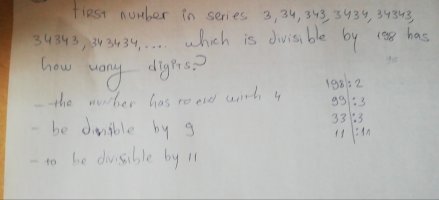 First number in series 3, 34, 343, 3434, 34343,
34343, 343434, .... which is divisible by 198 has
how many digits?
- the number has to end with 4
- be divisible by 9
- to be divisible by 11
198 : 2
99 : 3
33 : 3
11 : 11